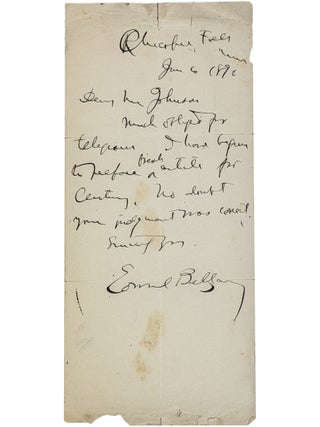 Chicopee Falls
Mass
Jan 6 1890
Dear Mr Johnson
Much obliged for
telegram. I have begun
to prepare fresh article for
Century. No doubt
your judgment was correct.
Sincerely yrs.
Edward Bellamy